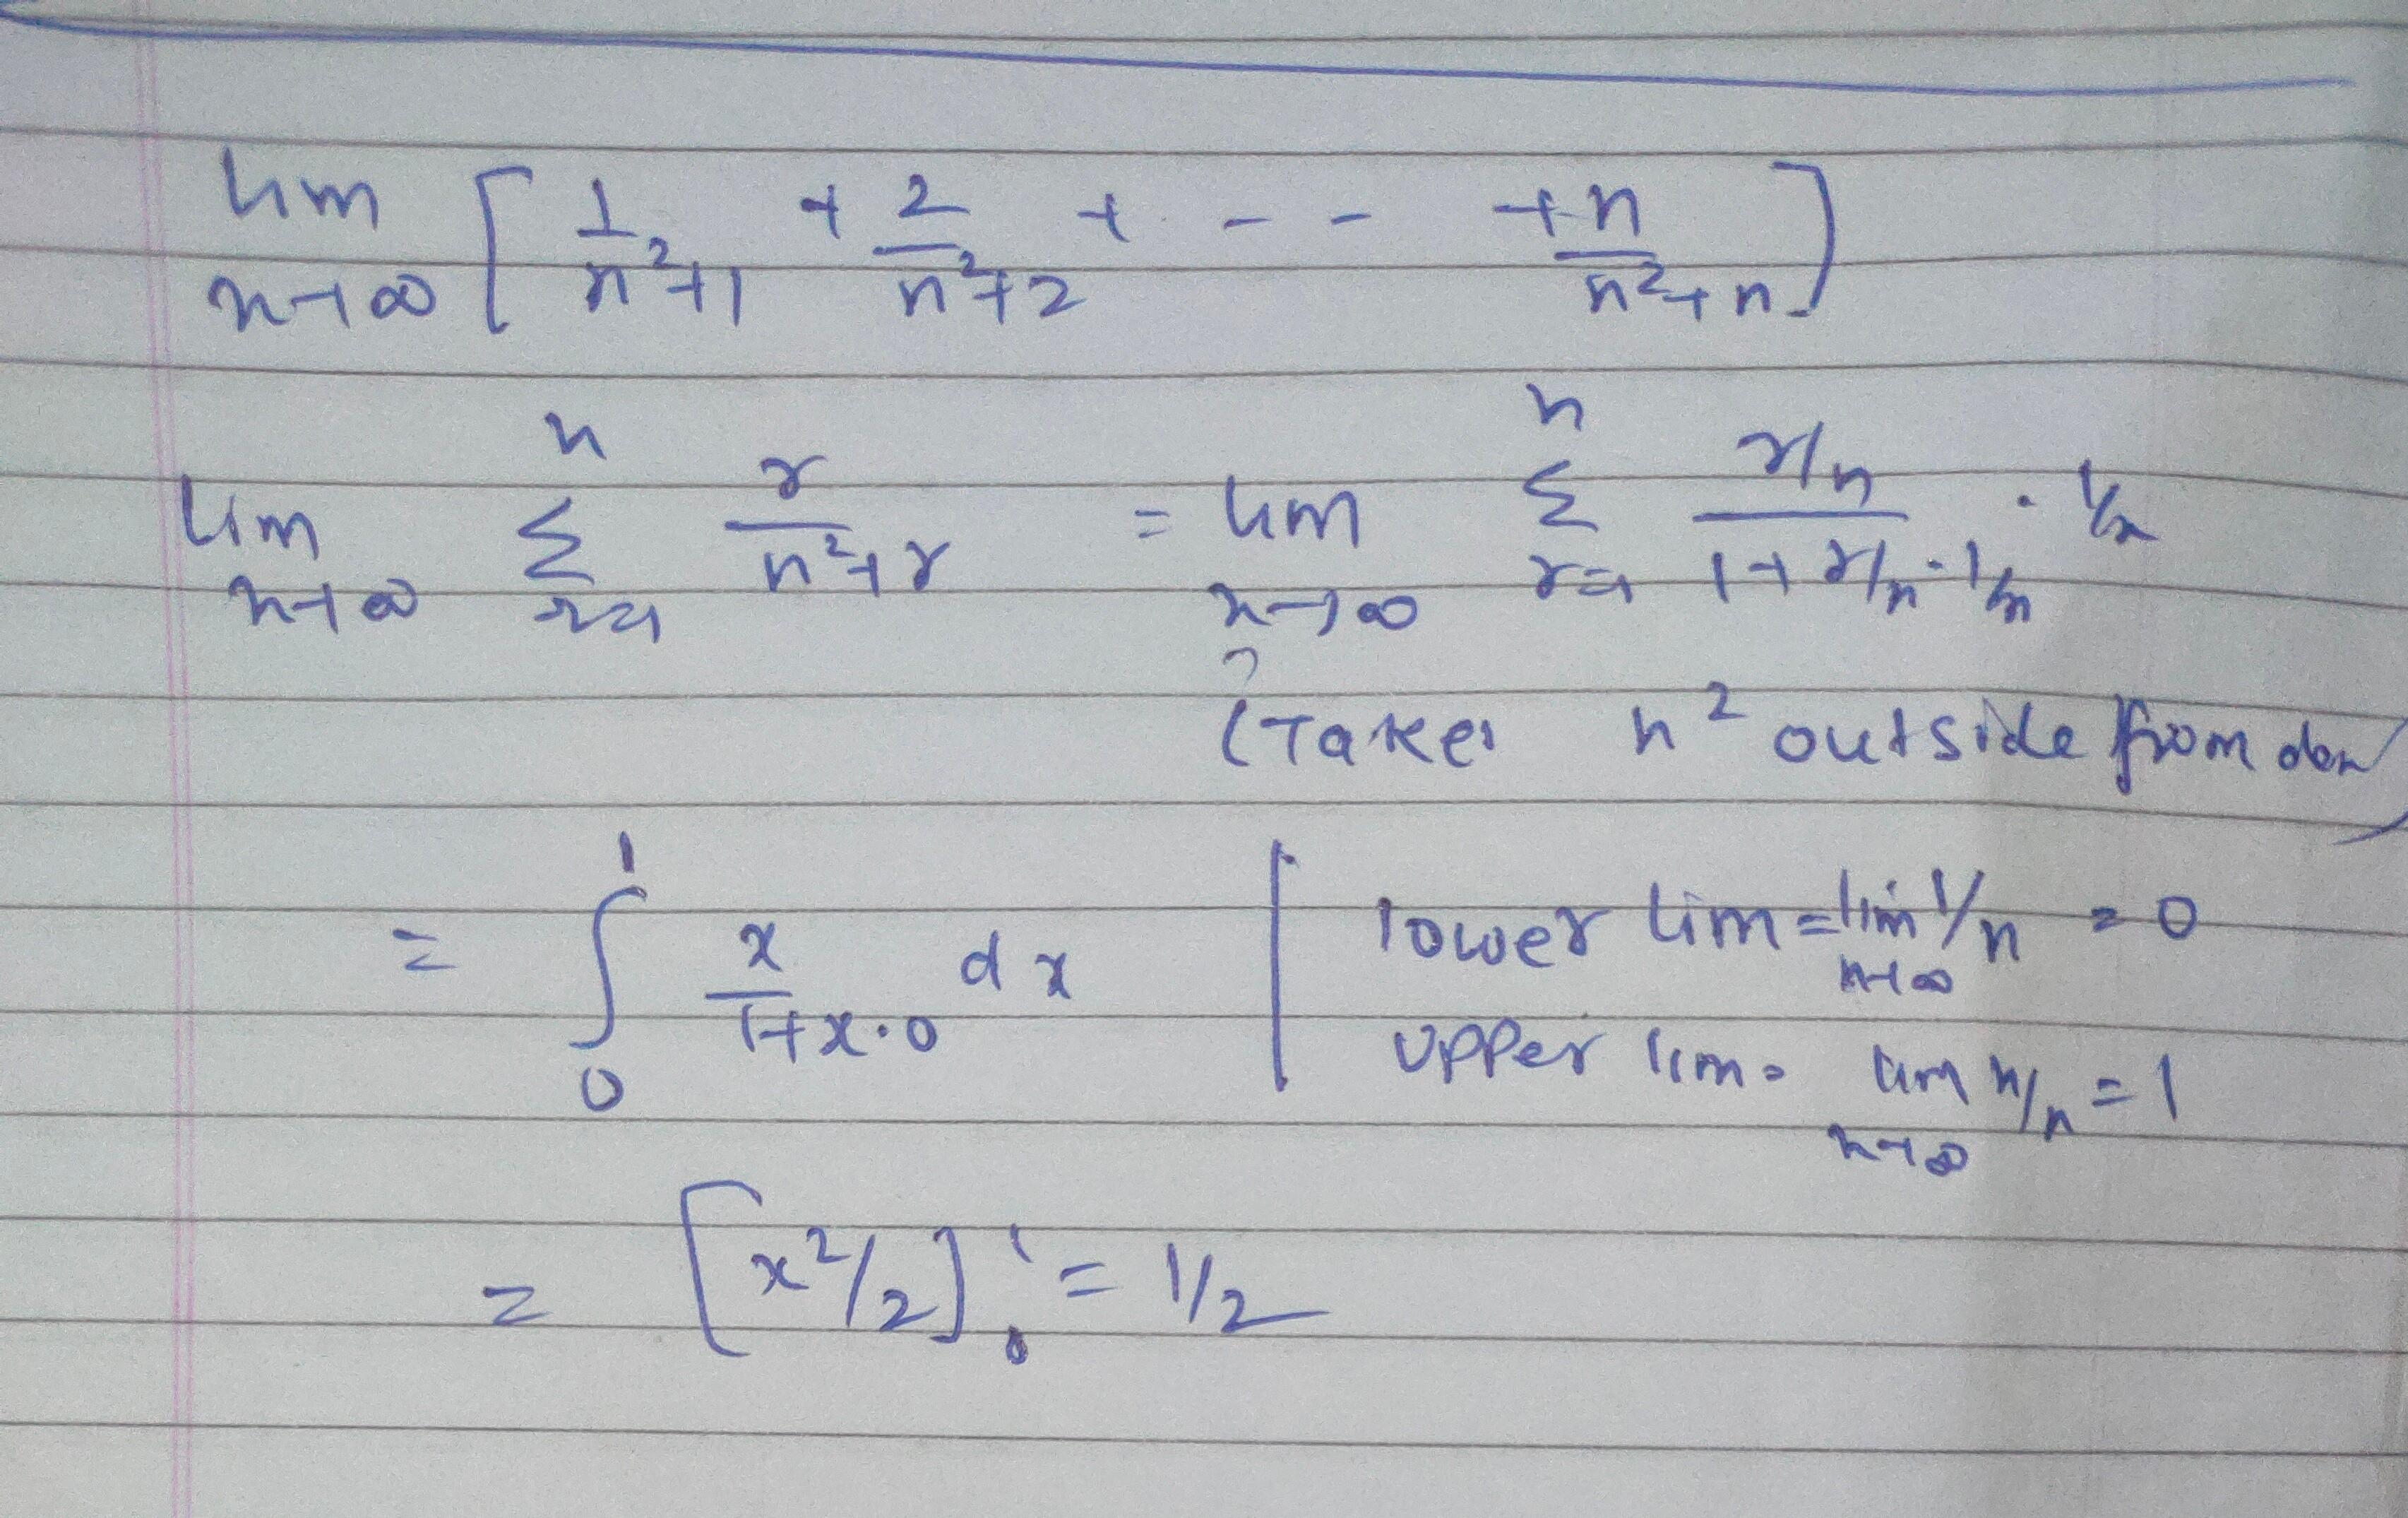 lim n→∞ [ 1/(n²+1) + 2/(n²+2) + - - + n/(n²+n) ]
lim n→∞ n Σ r=1 r/(n²+r) = lim n→∞ n Σ r=1 (r/n)/(1+r/n·1/n) · 1/n
(Take n² outside from den)
= ∫₀¹ x/(1+x·0) dx | lower lim = lim n→∞ 1/n = 0
upper lim = lim n→∞ n/n = 1
= [x²/2]₀¹ = 1/2